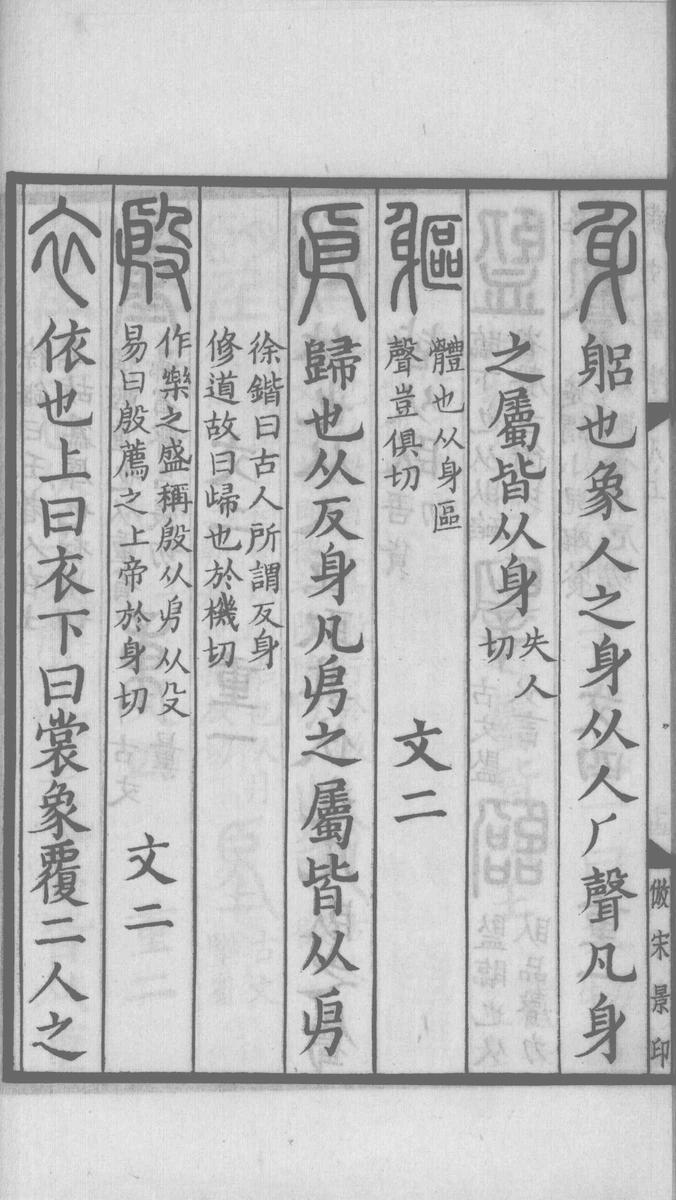 身 躳也象人之身从人厂聲凡身
之屬皆从身失人切
軀 體也从身區聲豈俱切 文二
㐆 歸也从反身凡㐆之屬皆从㐆
徐鍇曰古人所謂反身修道故曰歸也於機切
殷 作樂之盛稱殷从㐆从殳易曰殷薦之上帝於身切 文二
衣 依也上曰衣下曰裳象覆二人之
倣宋景印